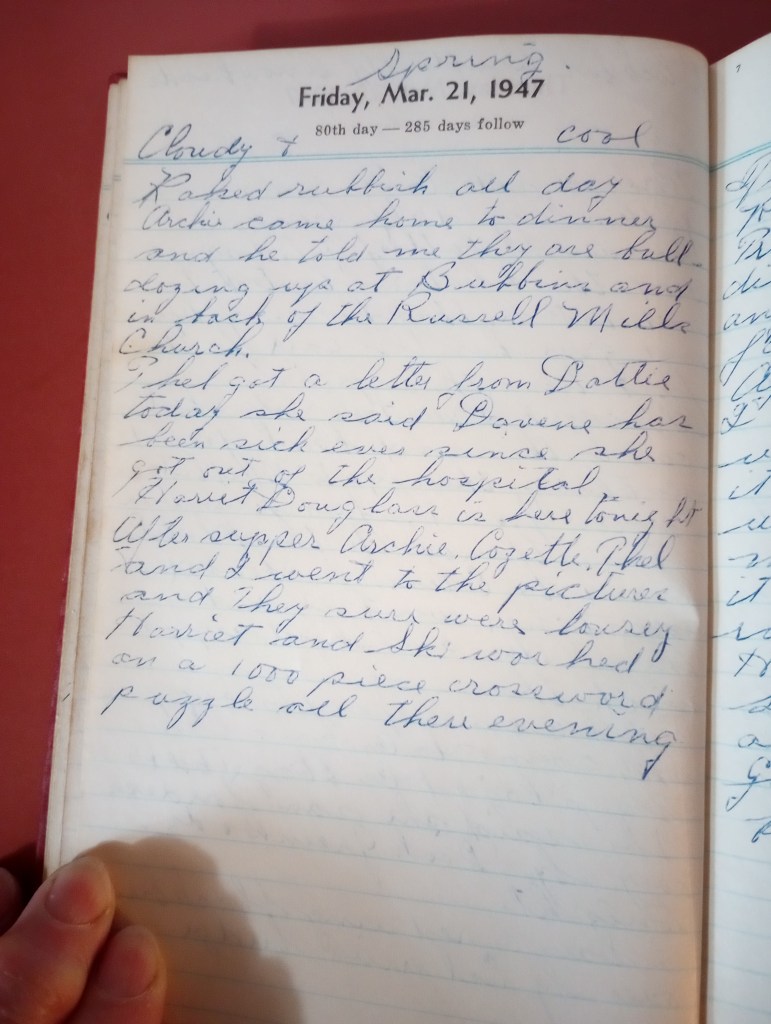 Spring.
Friday, Mar. 21, 1947
80th day — 285 days follow
Cloudy & cool
Raked rubbish all day
Archie came home to dinner
and he told me they are bull-
dozing up at Bubbins and
in back of the Russell Mills
Church.
Thel got a letter from Dottie
today she said Davene has
been sick ever since she
got out of the hospital
Harriet Douglass is here tonight
After supper Archie, Cozette, Thel
and I went to the pictures
and They sure were lousey
Harriet and Ski worked
on a 1000 piece crossword
puzzle all there evening